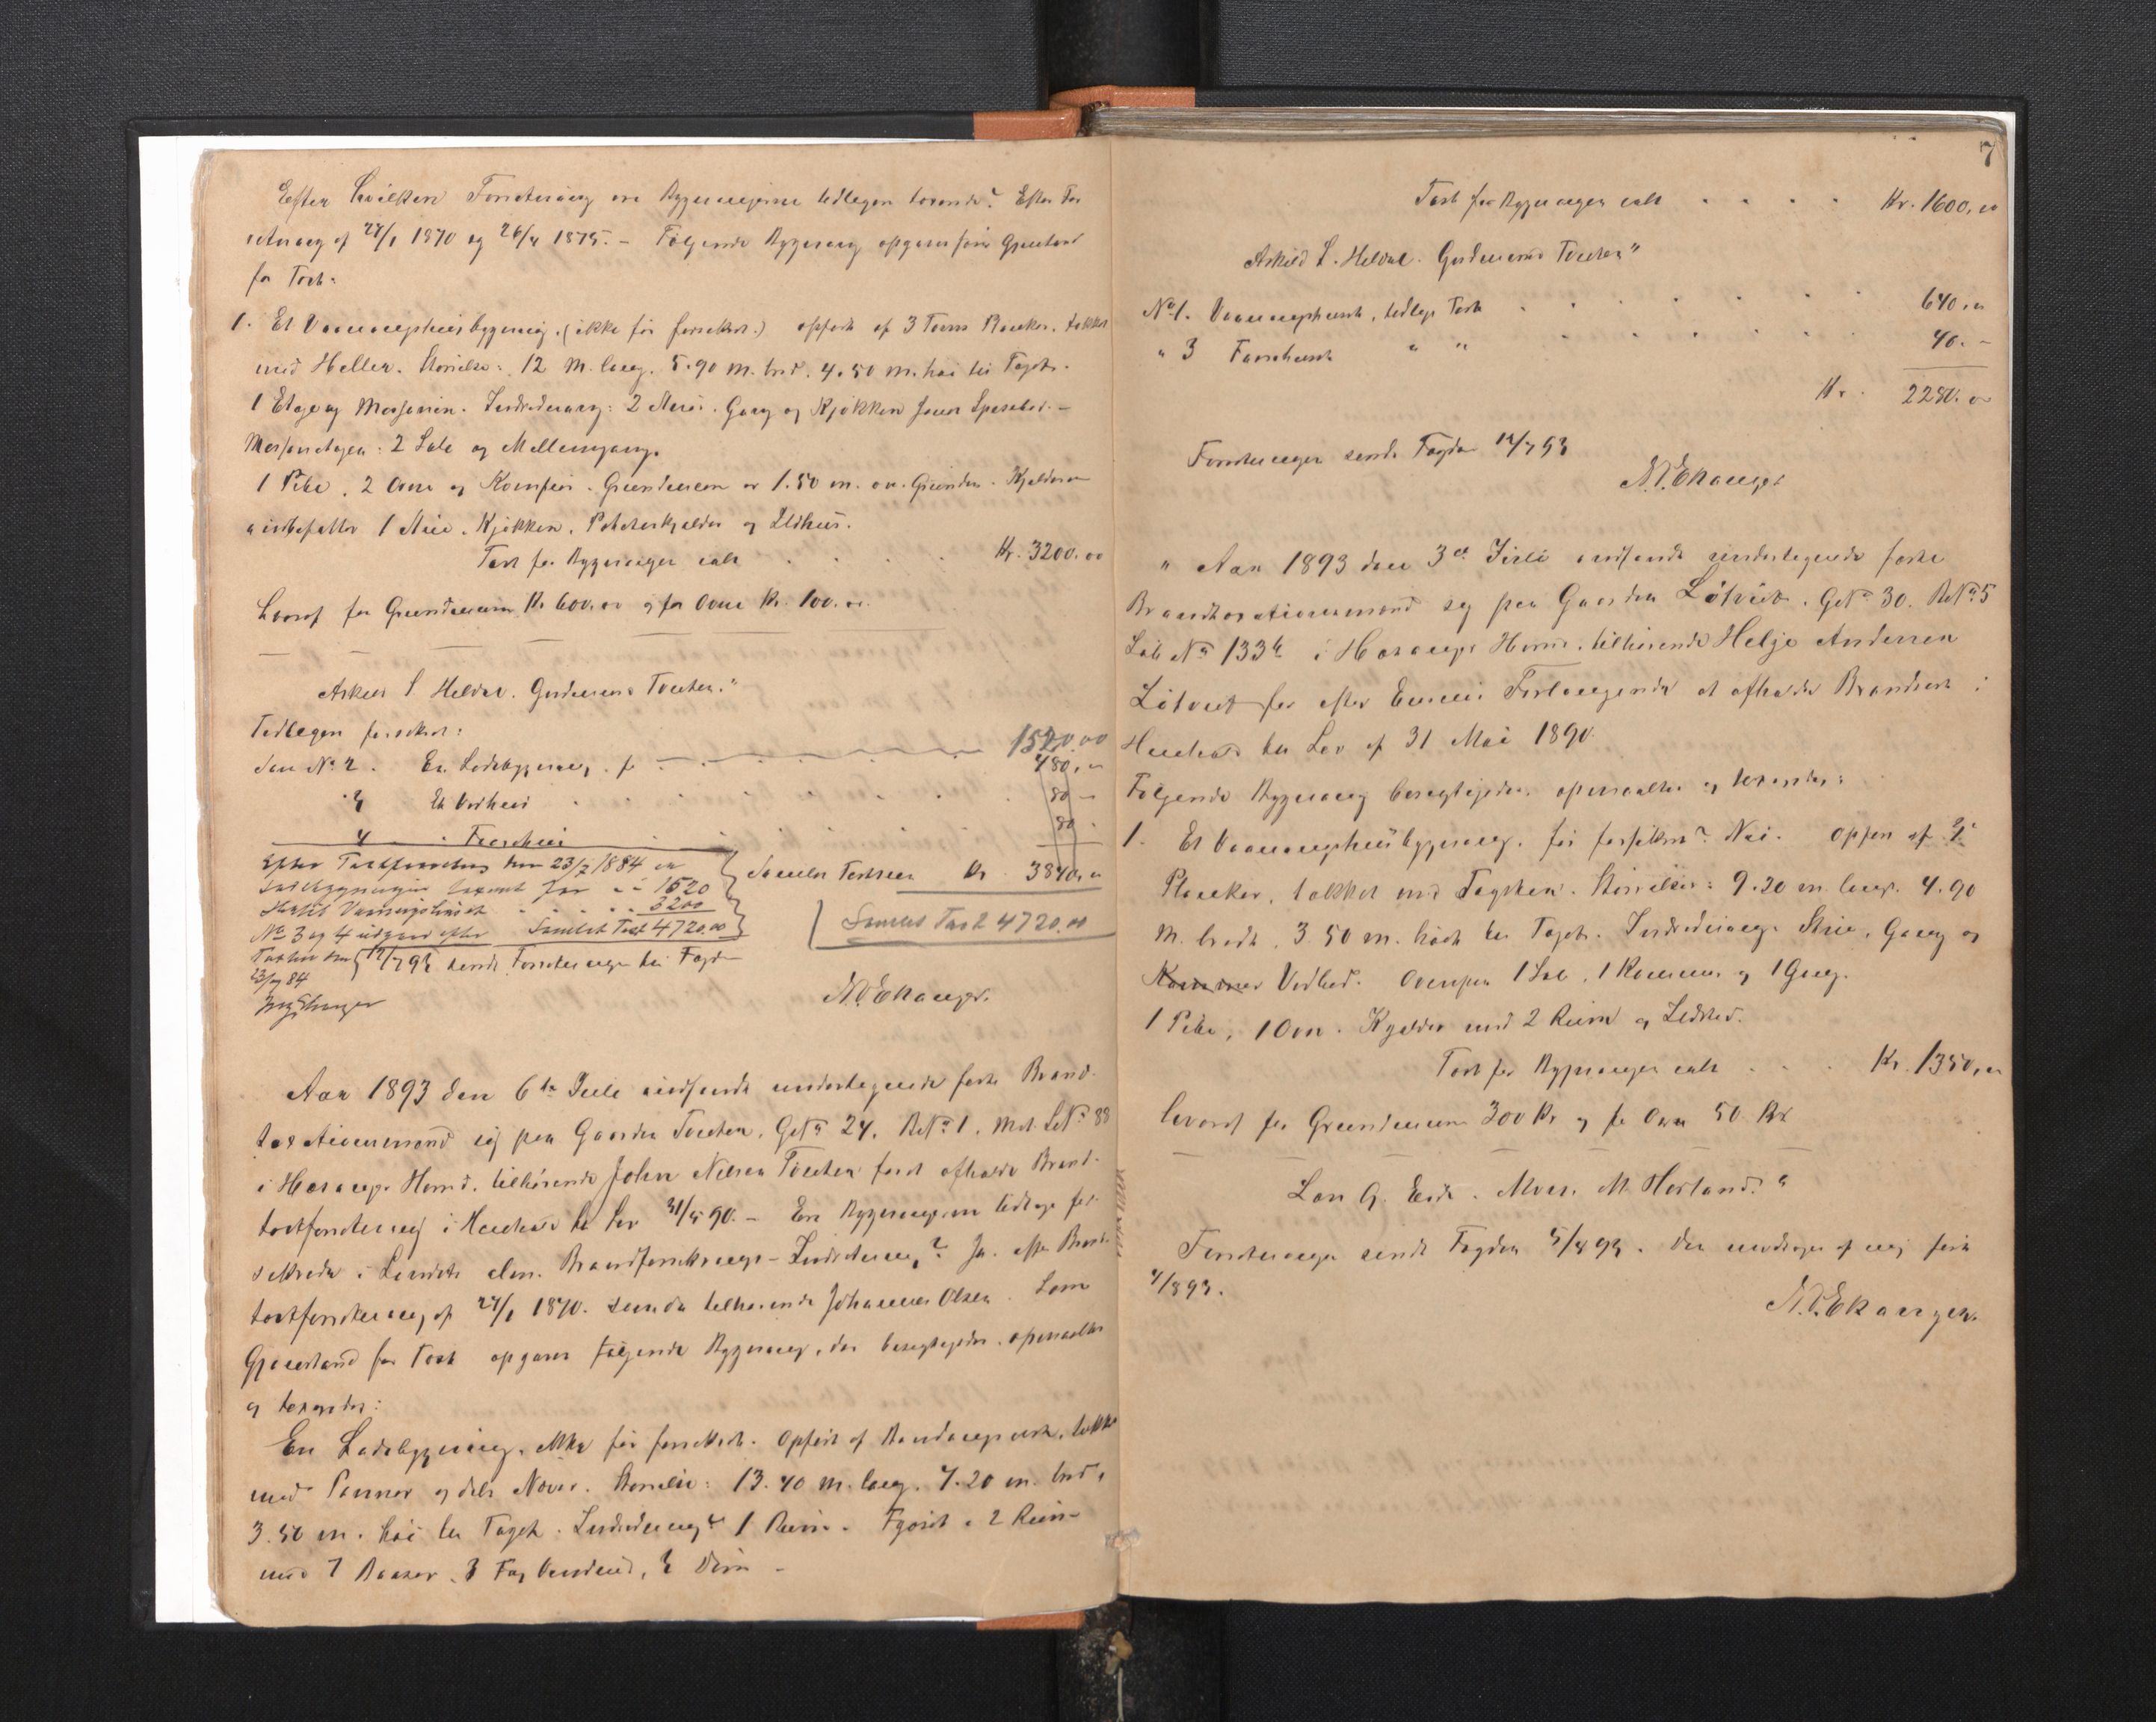 Efter hvilken Forretning ere Bygningerne tidligere taxerede? Efter For
retning af 27/1 1870 og 26/4 1875. – Følgende Bygning opgives som Gjenstand
for Taxt:
1. Et Vaaningshusbygning. (ikke før forsikret.) opført af 3 Toms Planker, tækket
med Heller. Størrelse: 12 M. lang. 5.90 M. bred. 4.50 M. høi til Taget.
1 Etage og Messanin. Indredning: 2 Stuer. Gang og Kjøkken samt Spisebod. –
Messanetagen: 2 Sale og Mellemgang.
1 Pibe, 2 Ovne og Komfur. Grundmuren er 1.50 m. ov. Grunden. Kjelderen
indbefatter 1 Stue, Kjøkken, Poteteskjelder og Ildhus.
Taxt for Bygningen ialt Kr. 3200.00
hvoraf for Grundmuren Kr 600.00 og for Ovne Kr. 100.00.
Askild L Heldal. Gudmund Tveiten."
Tidligere forsikret:
den No 2. En Ladebygning, for 1520.00
480.00
" 3 Et Vedhus 80 –
4 Florhus 80 –
Efter Taxtforretning den 23/7 1884 er
Ladebygningen taxeret for 1520
Hertil Vaaningshuset 3200
No 3 og 4 udgaar efter Samlet Taxt 4720.00
Samlet Taxtsum Kr 3840.00
Samlet Taxt 4720.00
Taxten den 12/7 93 sendt Forretningen til Fogden
23/7 84
N. O. Ekanger.
Aar 1893 den 6te Juli indfandt undertegnede faste Brand-
taxationsmænd sig paa Gaarden Tveiten, GNo 24, BNo 1, Mat LNo 88
i Hosanger Herred, tilhørende John Nilsen Tveiten for at afholde Brand-
taxtforretning i Henhold til Lov 31/5 90. – Ere Bygningerne tidligere for-
sikrede i Landets alm. Brandforsikrings-Indretning? Ja. efter Brand-
taxtforretning af 27/1 1870. dengang tilhørende Johannes Olsen. Som
Gjenstand for Taxt opgives følgende Bygning, der besigtigedes, opmaaltes
og taxeredes:
En Ladebygning, ikke før forsikret. Opført af Bindingsværk, tækket
med Panner og dels Næver. Størrelse: 13.40 M. lang. 7.20 m. bred,
3.50 m. høi til Taget. Indredning: 1 Rum. Fjøset i 2 Rum
med 7 Baaser. 3 Fag Vinduer, 3 Døre –
7
Taxt for Bygningen ialt Kr. 1600.00
Askild L. Heldal. Gudmund Tveiten"
No 1. Vaaningshuset, tidligere Taxt 640.00
" 3 Faarehuset " " 40. –
Kr. 2280.00
Forretningen sendt Fogden 12/7 93
N. O. Ekanger
" Aar 1893 den 3die Juli indfandt undertegnede faste
Brandtaxationsmænd sig paa Gaarden Løtveit, GNo 30. BNo 5
Løbe No 133b i Hosanger Herred, tilhørende Helje Andersen
Løtveit for efter Eierens Forlangende at afholde Brandtaxt i
Henhold til Lov af 31 Mai 1890.
Følgende Bygning besigtigedes, opmaaltes og taxeredes:
1. Et Vaaningshusbygning, før forsikret? Nei. Opført af 3"
Planker, tækket med Tagsten. Størrelse: 9.20 m. lang. 4.90
M. bredt. 3.50 m. høit til Taget. Indredning: Stue, Gang og
Kammer Vedbod. Ovenpaa 1 Sal, 1 Kammer og 1 Gang.
1 Pibe, 1 Ovn. Kjelder med 2 Rum og Ildsted.
Taxt for Bygningen ialt Kr. 1350.00
hvoraf for Grundmuren 300 Kr og for Ovn 50 Kr
Lars G. Eide. Mons M. Hosland. "
Forretningen sendt Fogden 5/8 93. Den modtoges af mig først
4/8 93.
N. O. Ekanger.